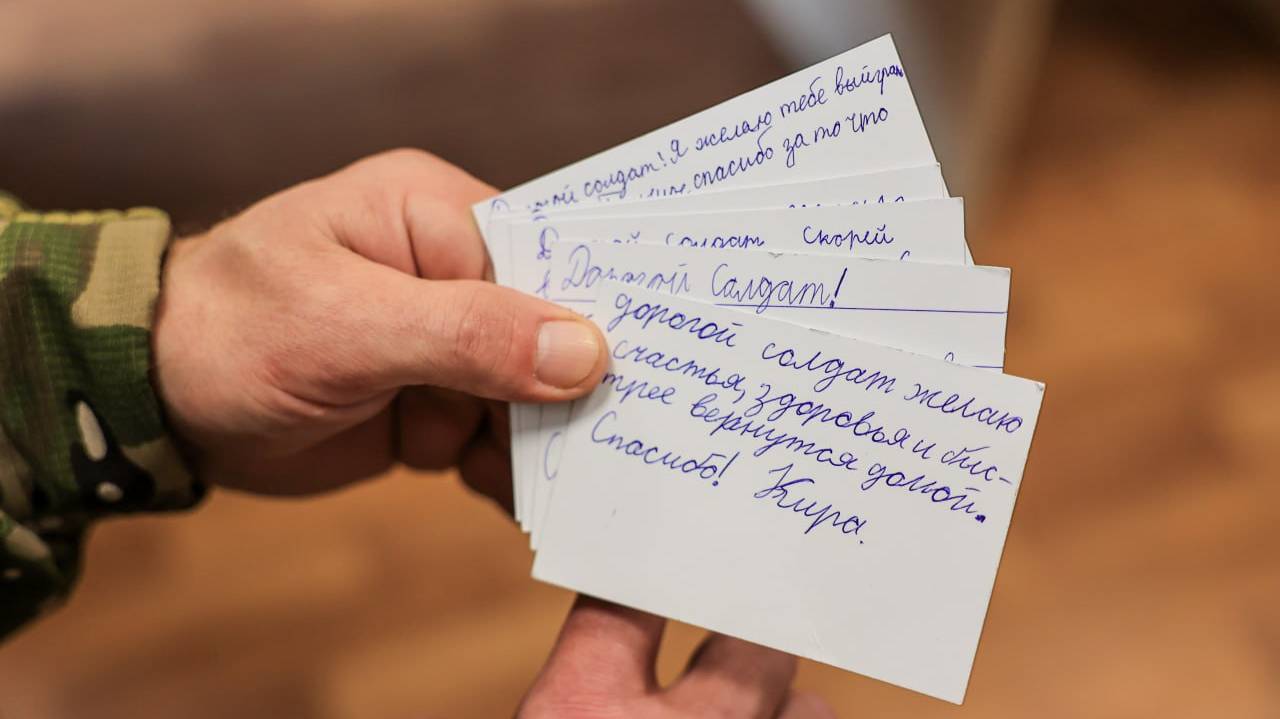 солдат! Я желаю тебе выиграть
спасибо за то что
солдат скорей
Дорогой Солдат!
дорогой солдат желаю
счастья, здоровья и быс-
трее вернутся домой.
Спасибо! Кира.